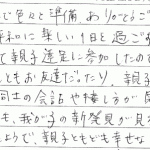 で色々と準備ありがとうご
和に楽しい1日を過ごす
て親子遠足に参加したので
ともお友達だったり、親子
同士の会話や接し方が
も、我が子の新発見が見
ようで、親子ともども幸せな